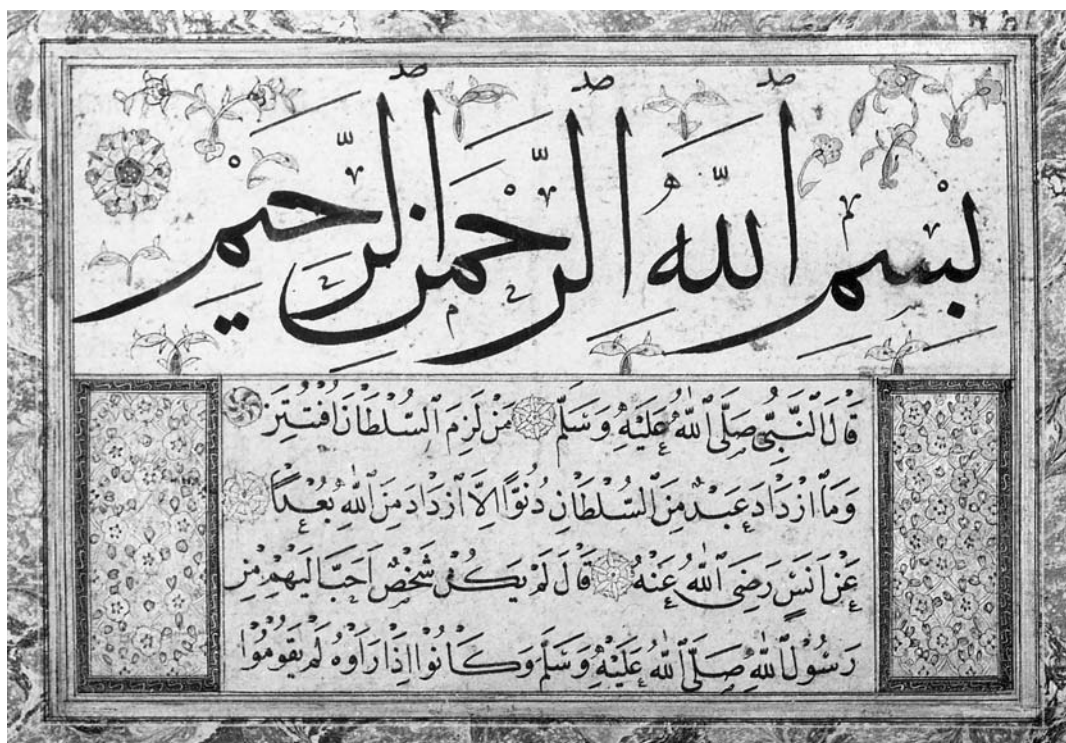 بِسْمِ ٱللّٰهِ ٱلرَّحْمٰنِ ٱلرَّحِيْمِ
قَالَ النَّبِيُّ صَلَّى ٱللّٰهُ عَلَيْهِ وَسَلَّمْ مَنْ لَزِمَ ٱلسُّلْطَانَ اُفْتُتِنَ
وَمَا ٱزْدَادَ عَبْدٌ مِنَ ٱلسُّلْطَانِ دُنُوًّا اِلَّا ٱزْدَادَ مِنَ ٱللّٰهِ بُعْدًا
عَنْ اَنَسٍ رَضِىَ ٱللّٰهُ عَنْهُ قَالَ لَمْ يَكُنْ شَخْصٌ اَحَبَّ اِلَيْهِمْ مِنْ
رَسُولِ ٱللّٰهِ صَلَّى ٱللّٰهُ عَلَيْهِ وَسَلَّمَ وَكَانُوْا اِذَا رَاَوْهُ لَمْ يَقُومُوْا